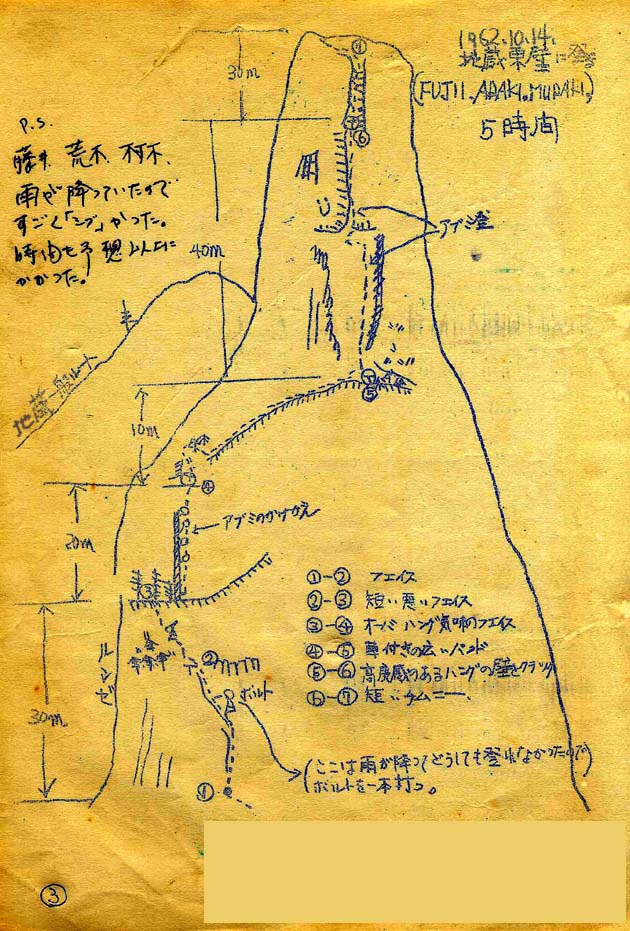 1962.10.14.
地蔵東壁に登る
(FUJII. ARAKI. MURAKI.)
5時間
P.S.
藤井、荒木、村木、
雨が降っていたので
すごく「シブ」かった。
時间も予想以上に
かかった。
30m
①
⑦
⑥
アブミ登
40m
地蔵一般ルート
⑤
10m
④
アブミのかけかえ
20m
③
ルンゼ
②
ボルト
30m
①
①-② フェイス
②-③ 短い悪いフェイス
③-④ オーバーハング気味のフェイス
④-⑤ 草付きの広いバンド
⑤-⑥ 高度感のあるハングの壁とクラック
⑥-⑦ 短いチムニー
(ここは雨が降ってどうしても登れなかったので)
ボルトを一本打つ。
③